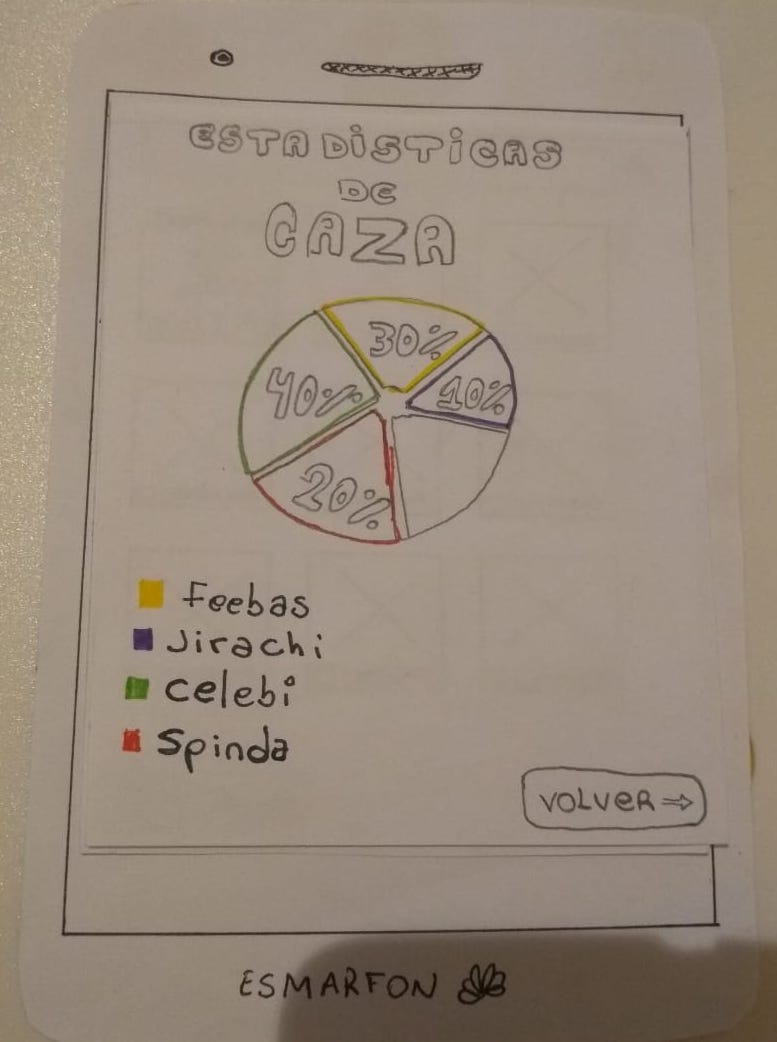 ESTADiSTiCAS
DE
CAZA
30%
40%
10%
20%
Feebas
Jirachi
Celebi
Spinda
VOLVER ⇒
ESMARFON